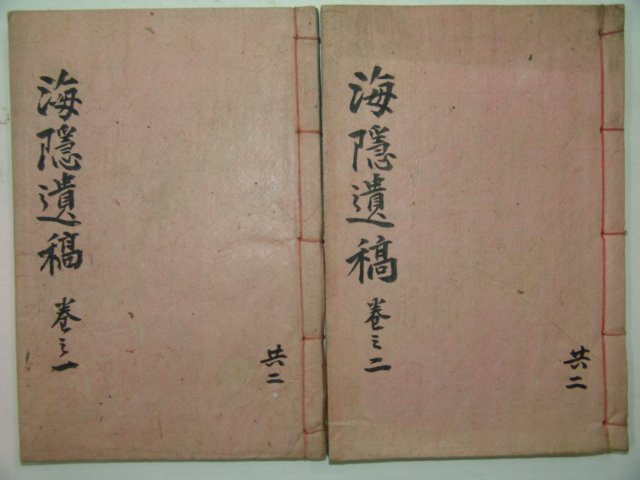 海隱遺稿
卷之一
共二
海隱遺稿
卷之二
共二